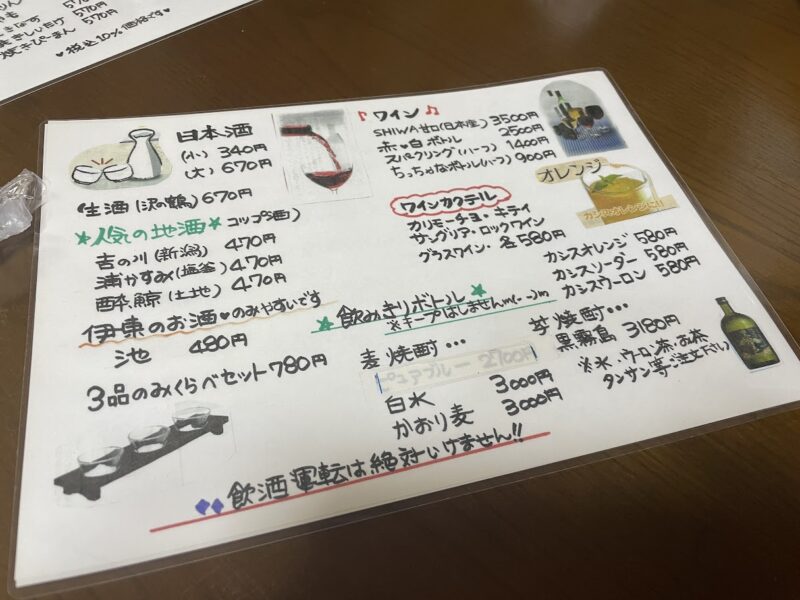 570円
570円
焼きぴーまん 570円
♥税込10%価格です♥
日本酒
(小) 340円
(大) 670円
生酒(沢の鶴) 670円
★人気の地酒★ コップ酒)
吉の川(新潟) 470円
浦かすみ(塩釜) 470円
酔鯨(土地) 470円
伊東のお酒♥のみやすいです
池 480円
3品のみくらべセット780円
『ワイン♫
SHIWA甘口(日本産) 3500円
赤♥白ボトル 2500円
スパークリング(ハーフ) 1400円
ちっちゃなボトル(ハーフ) 900円
ワインカクテル
カリモーチョ・キティ
サングリア・ロックワイン
グラスワイン・各580円
オレンジ
カシスオレンジに!!
カシスオレンジ 580円
カシスソーダー 580円
カシスウーロン 580円
★飲みきりボトル★
※キープはしませんm(--)m
麦焼酎…
ピュアブルー 2700円
白水 3000円
かおり麦 3000円
芋焼酎…
黒霧島 3180円
※氷、ウーロン茶、お茶
タンサン等ご注文下さい)
飲酒運転は絶対いけません!!